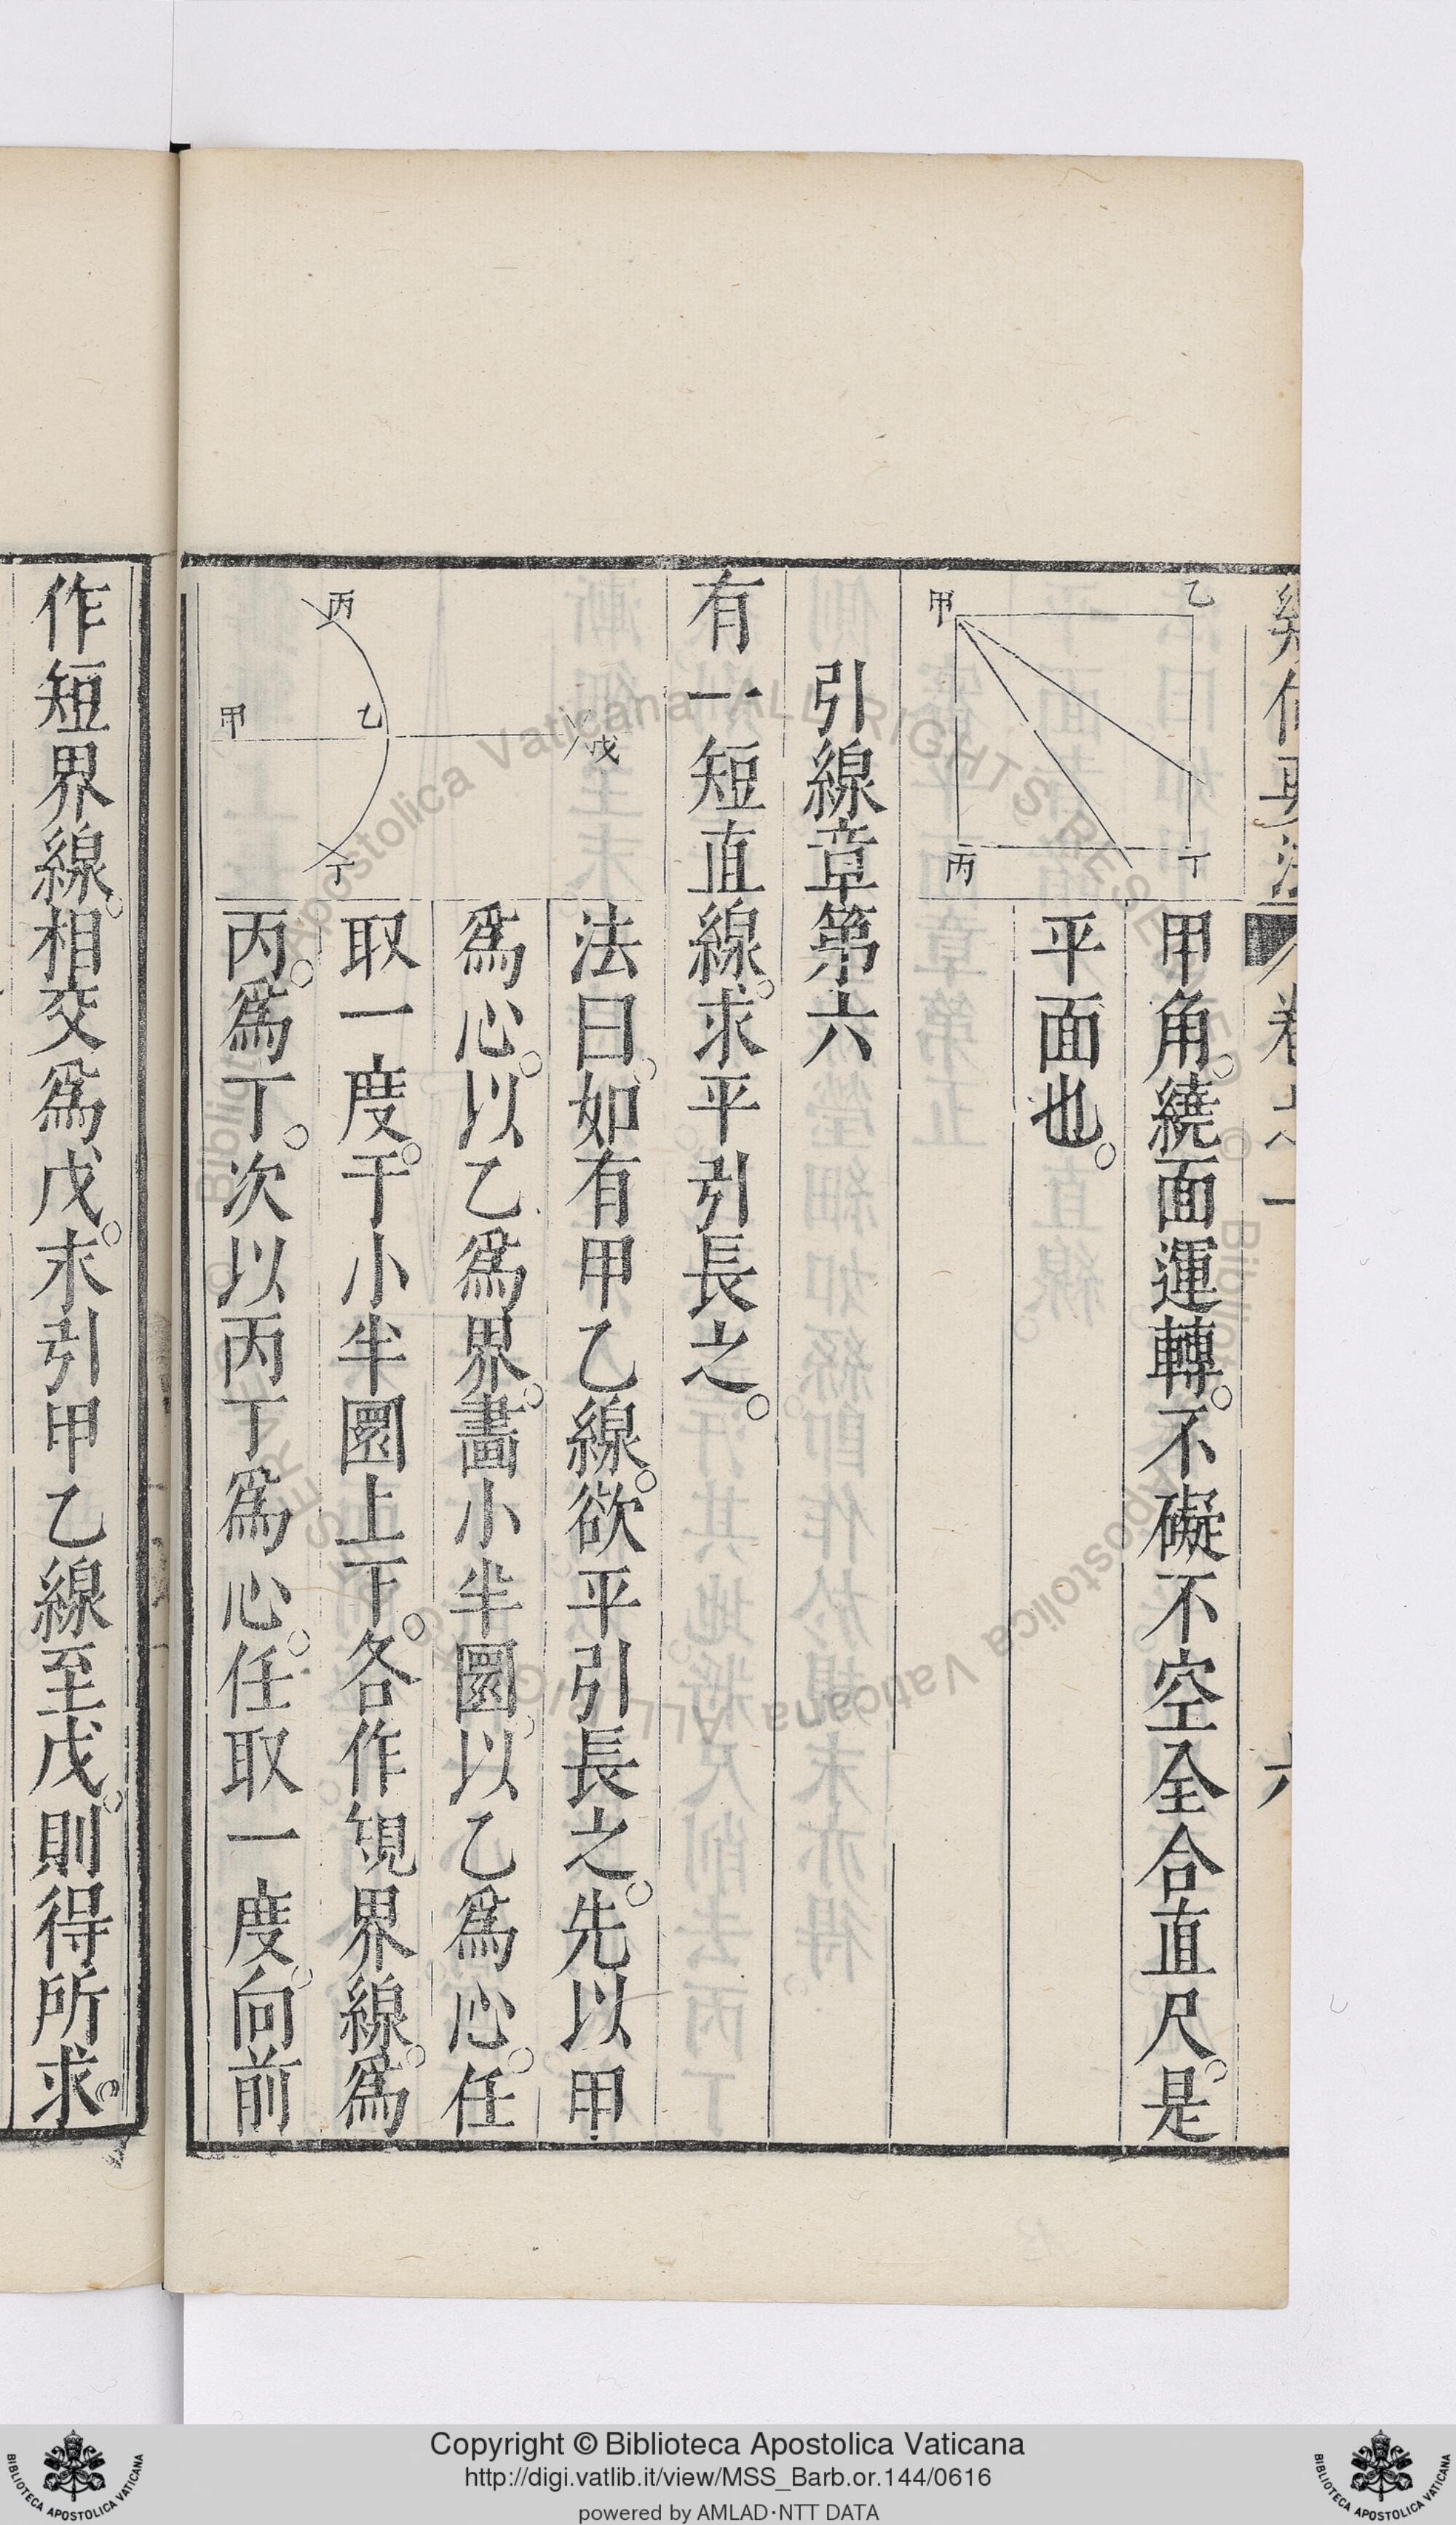 幾何要法
卷之一
六
乙
甲
丁
丙
甲角。繞面運轉。不礙不空全合直尺。是
平面也。
引線章第六
有一短直線。求平引長之。
法曰。如有甲乙線。欲平引長之。先以甲
為心。以乙為界。畫小半圜。以乙為心。任
取一度。于小半圜上下。各作短界線。為
丙。為丁。次以丙丁為心。任取一度。向前
丙
甲
乙
戊
丁
作短界線。相交為戊。末引甲乙線至戊。則得所求。
Copyright © Biblioteca Apostolica Vaticana
http://digi.vatlib.it/view/MSS_Barb.or.144/0616
powered by AMLAD·NTT DATA
BIBLIOTECA APOSTOLICA VATICANA
BIBLIOTECA APOSTOLICA VATICANA